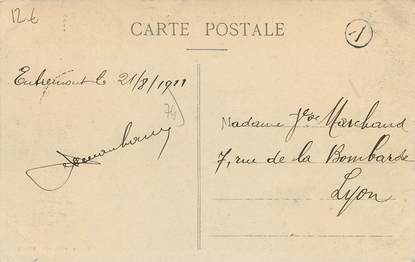 12 €
CARTE POSTALE
1
Entremont le 21/8/1911
74
Madame Jve Marchand
7, rue de la Bombarde
Lyon